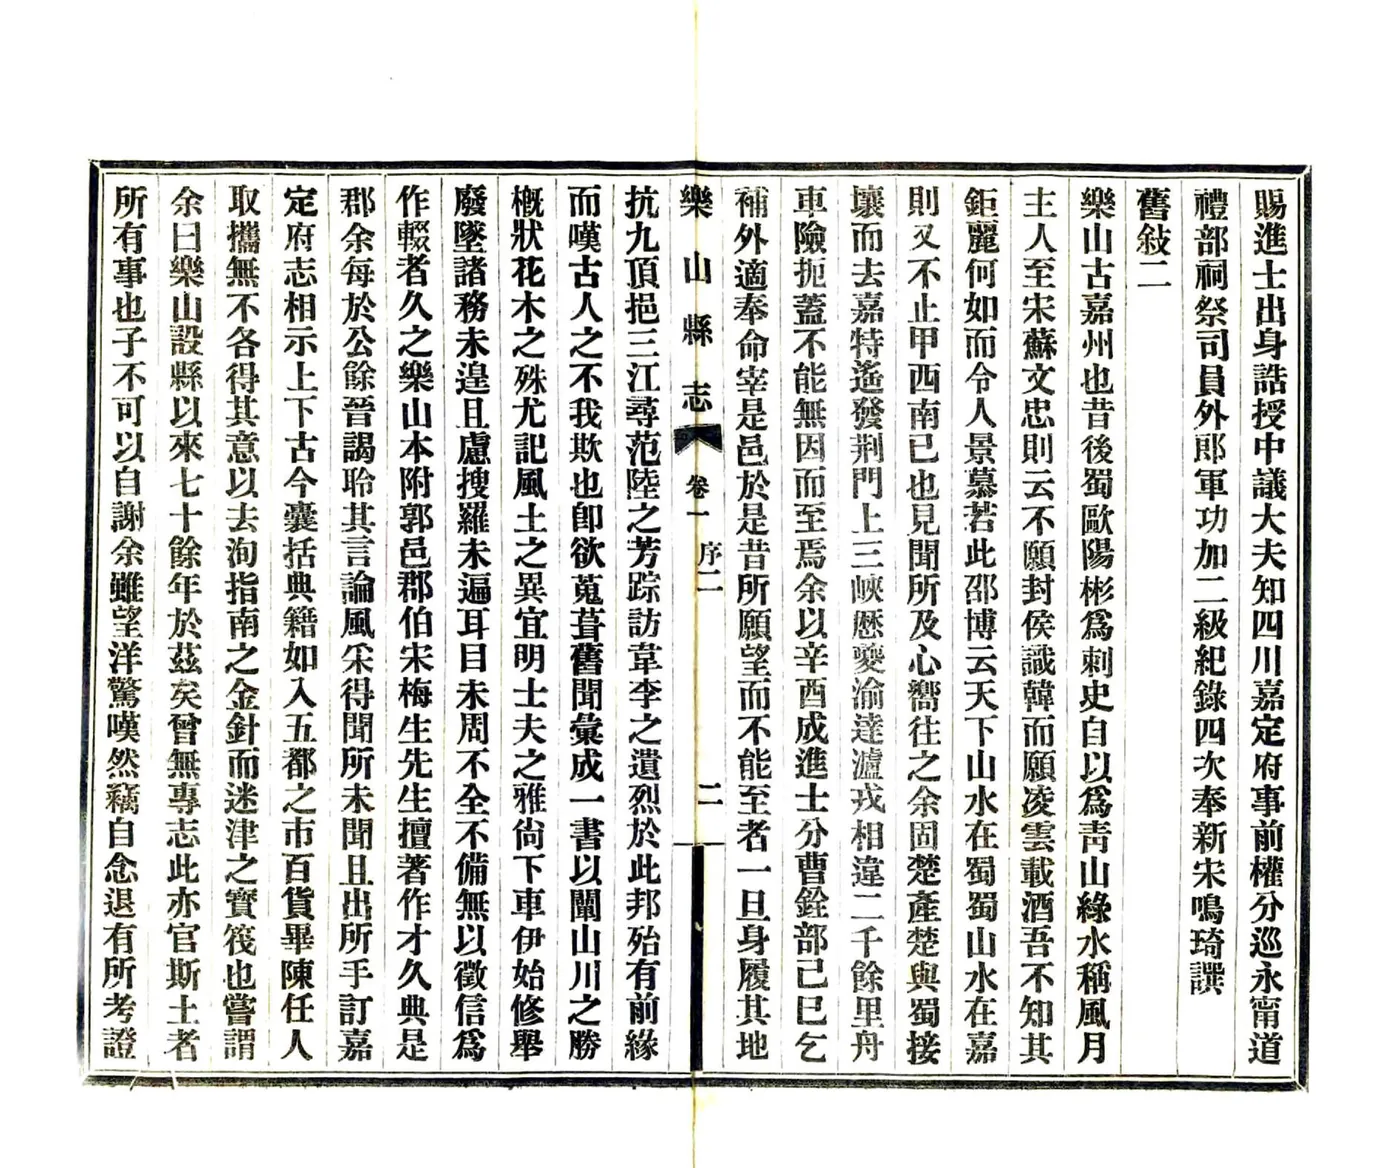 賜進士出身誥授中議大夫知四川嘉定府事前權分巡永甯道
禮部祠祭司員外郎軍功加二級紀錄四次奉新宋鳴琦譔
舊敍二
樂山古嘉州也昔後蜀歐陽彬爲刺史自以爲靑山綠水稱風月
主人至宋蘇文忠則云不願封侯識韓而願凌雲載酒吾不知其
鉅麗何如而令人景慕若此邵博云天下山水在蜀蜀山水在嘉
則又不止甲西南已也見聞所及心嚮往之余固楚產楚與蜀接
壤而去嘉特遙發荆門上三峽歷夔渝達瀘戎相違二千餘里舟
車險扼蓋不能無因而至焉余以辛酉成進士分曹銓部己巳乞
補外適奉命宰是邑於是昔所願望而不能至者一旦身履其地
樂山縣志 卷一 序二 二
抗九頂挹三江尋范陸之芳踪訪韋李之遺烈於此邦殆有前緣
而嘆古人之不我欺也卽欲蒐葺舊聞彙成一書以闡山川之勝
槪狀花木之殊尤記風土之異宜明士夫之雅尙下車伊始修舉
廢墜諸務未遑且慮搜羅未遍耳目未周不全不備無以徵信爲
作輟者久之樂山本附郭邑郡伯宋梅生先生擅著作才久典是
郡余每於公餘晉謁聆其言論風采得聞所未聞且出所手訂嘉
定府志相示上下古今囊括典籍如入五都之市百貨畢陳任人
取攜無不各得其意以去洵指南之金針而迷津之寳筏也嘗謂
余曰樂山設縣以來七十餘年於茲矣曾無專志此亦官斯土者
所有事也子不可以自謝余雖望洋驚嘆然竊自念退有所考證